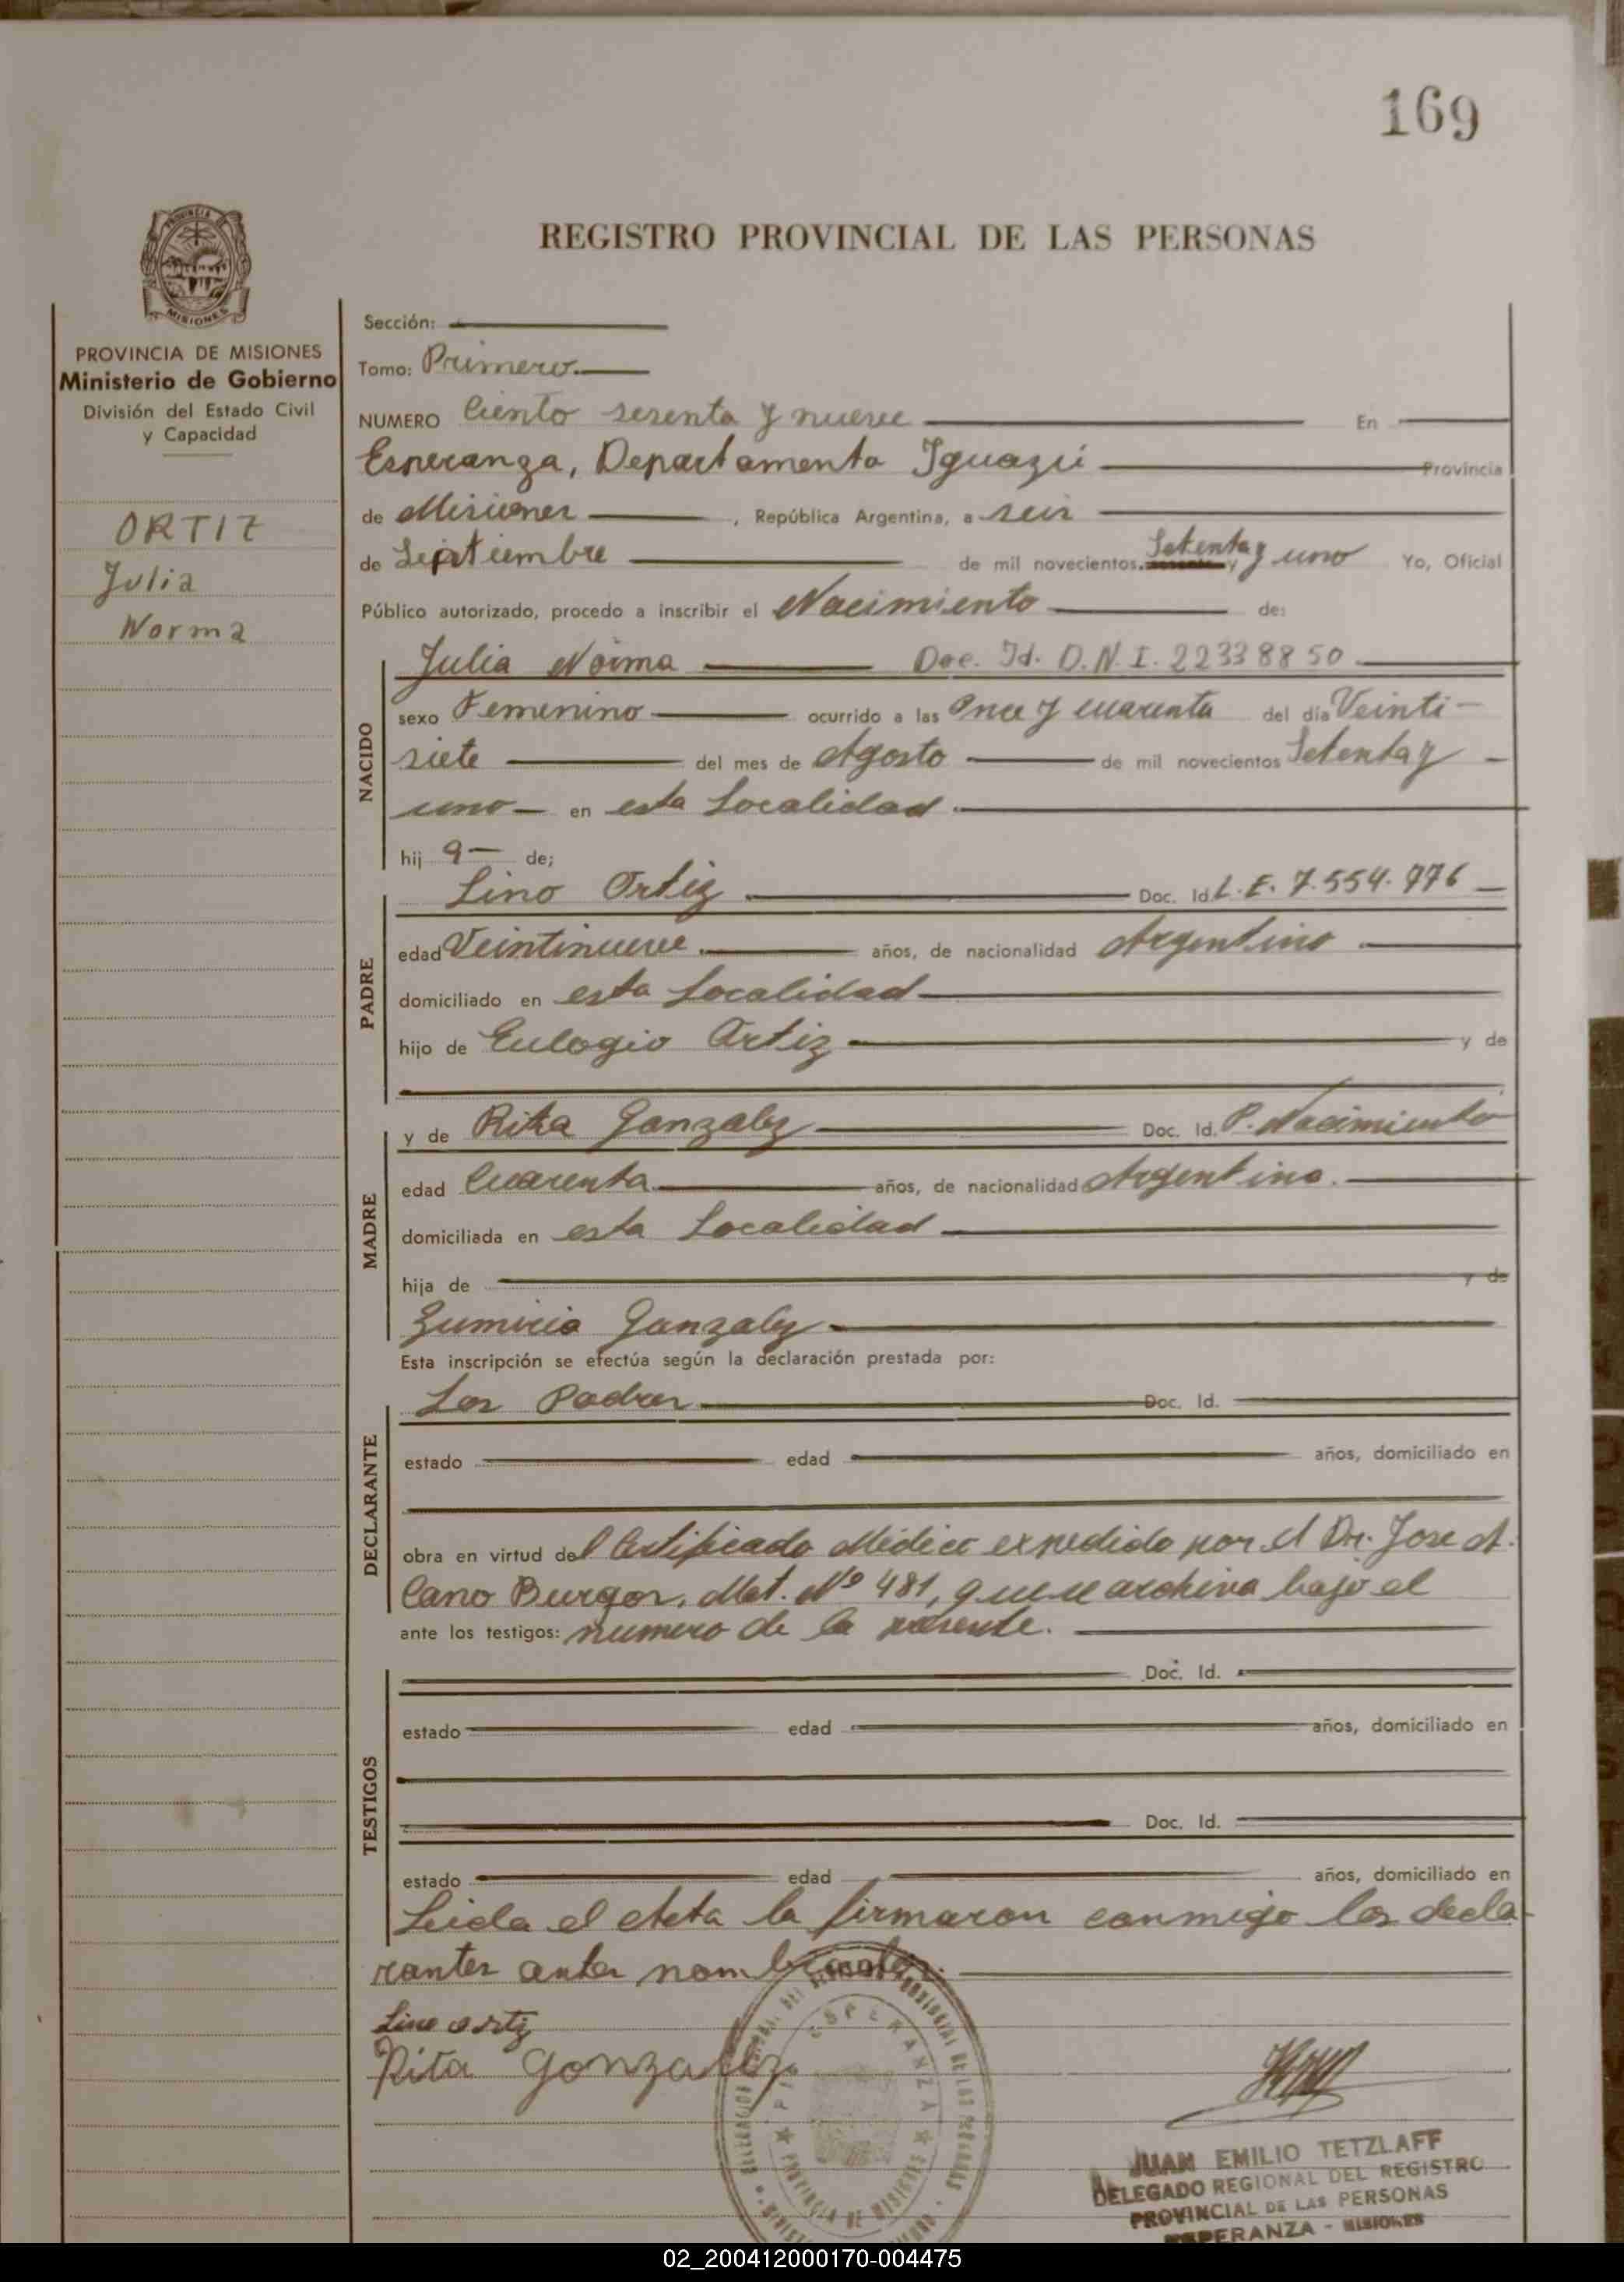 169
REGISTRO PROVINCIAL DE LAS PERSONAS
PROVINCIA DE MISIONES
Ministerio de Gobierno
División del Estado Civil
y Capacidad
ORTIZ
Julia
Norma
Sección:
Tomo: Primero.
NUMERO Ciento sesenta y nueve En
Esperanza, Departamento Iguazú Provincia
de Misiones, República Argentina, a seis
de Septiembre de mil novecientos Setenta y uno Yo, Oficial
Público autorizado, procedo a inscribir el Nacimiento de:
Julia Norma Doc. Id. D.N.I. 22338850
NACIDO
sexo Femenino ocurrido a las Once y cuarenta del día Veinti-
siete del mes de Agosto de mil novecientos Setenta y
uno en esta Localidad.
hij a de;
PADRE
Lino Ortiz Doc. Id. L.E. 7.554.776
edad Veintinueve. años, de nacionalidad Argentino.
domiciliado en esta Localidad
hijo de Eulogio Ortiz y de
MADRE
y de Rita Gonzalez Doc. Id. P. Nacimiento
edad Cuarenta años, de nacionalidad Argentina.
domiciliada en esta Localidad
hija de y de
Gonzalez
Esta inscripción se efectúa según la declaración prestada por:
DECLARANTE
Los Padres Doc. Id.
estado edad años, domiciliado en
obra en virtud del Certificado Médico expedido por el Dr. Jose A.
Cano Burgos, Mat. Nº 481, que se archiva bajo el
ante los testigos: numero de la presente.
TESTIGOS
Doc. Id.
estado edad años, domiciliado en
Doc. Id.
estado edad años, domiciliado en
Leida el Acta la firmaron conmigo los decla
rantes antes nombrados.
Lino Ortiz
Rita Gonzalez
ESPERANZA
PROVINCIA DE MISIONES
JUAN EMILIO TETZLAFF
DELEGADO REGIONAL DEL REGISTRO
PROVINCIAL DE LAS PERSONAS
ESPERANZA - MISIONES
02_200412000170-004475